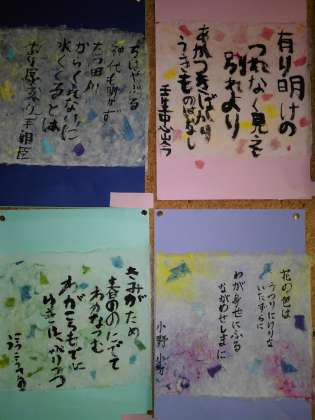 ちはやぶる
神代もきかず
たつ田川
からくれなゐに
水くくるとは
在原業平朝臣
有り明けの
つれなく見えし
別れより
あかつきばかり
うきものはなし
壬生忠岑
きみがため
春ののにでて
わかなつむ
わがころもでに
ゆきはふりつつ
花の色は
うつりにけりな
いたずらに
わが身世にふる
ながめせしまに
小野小町